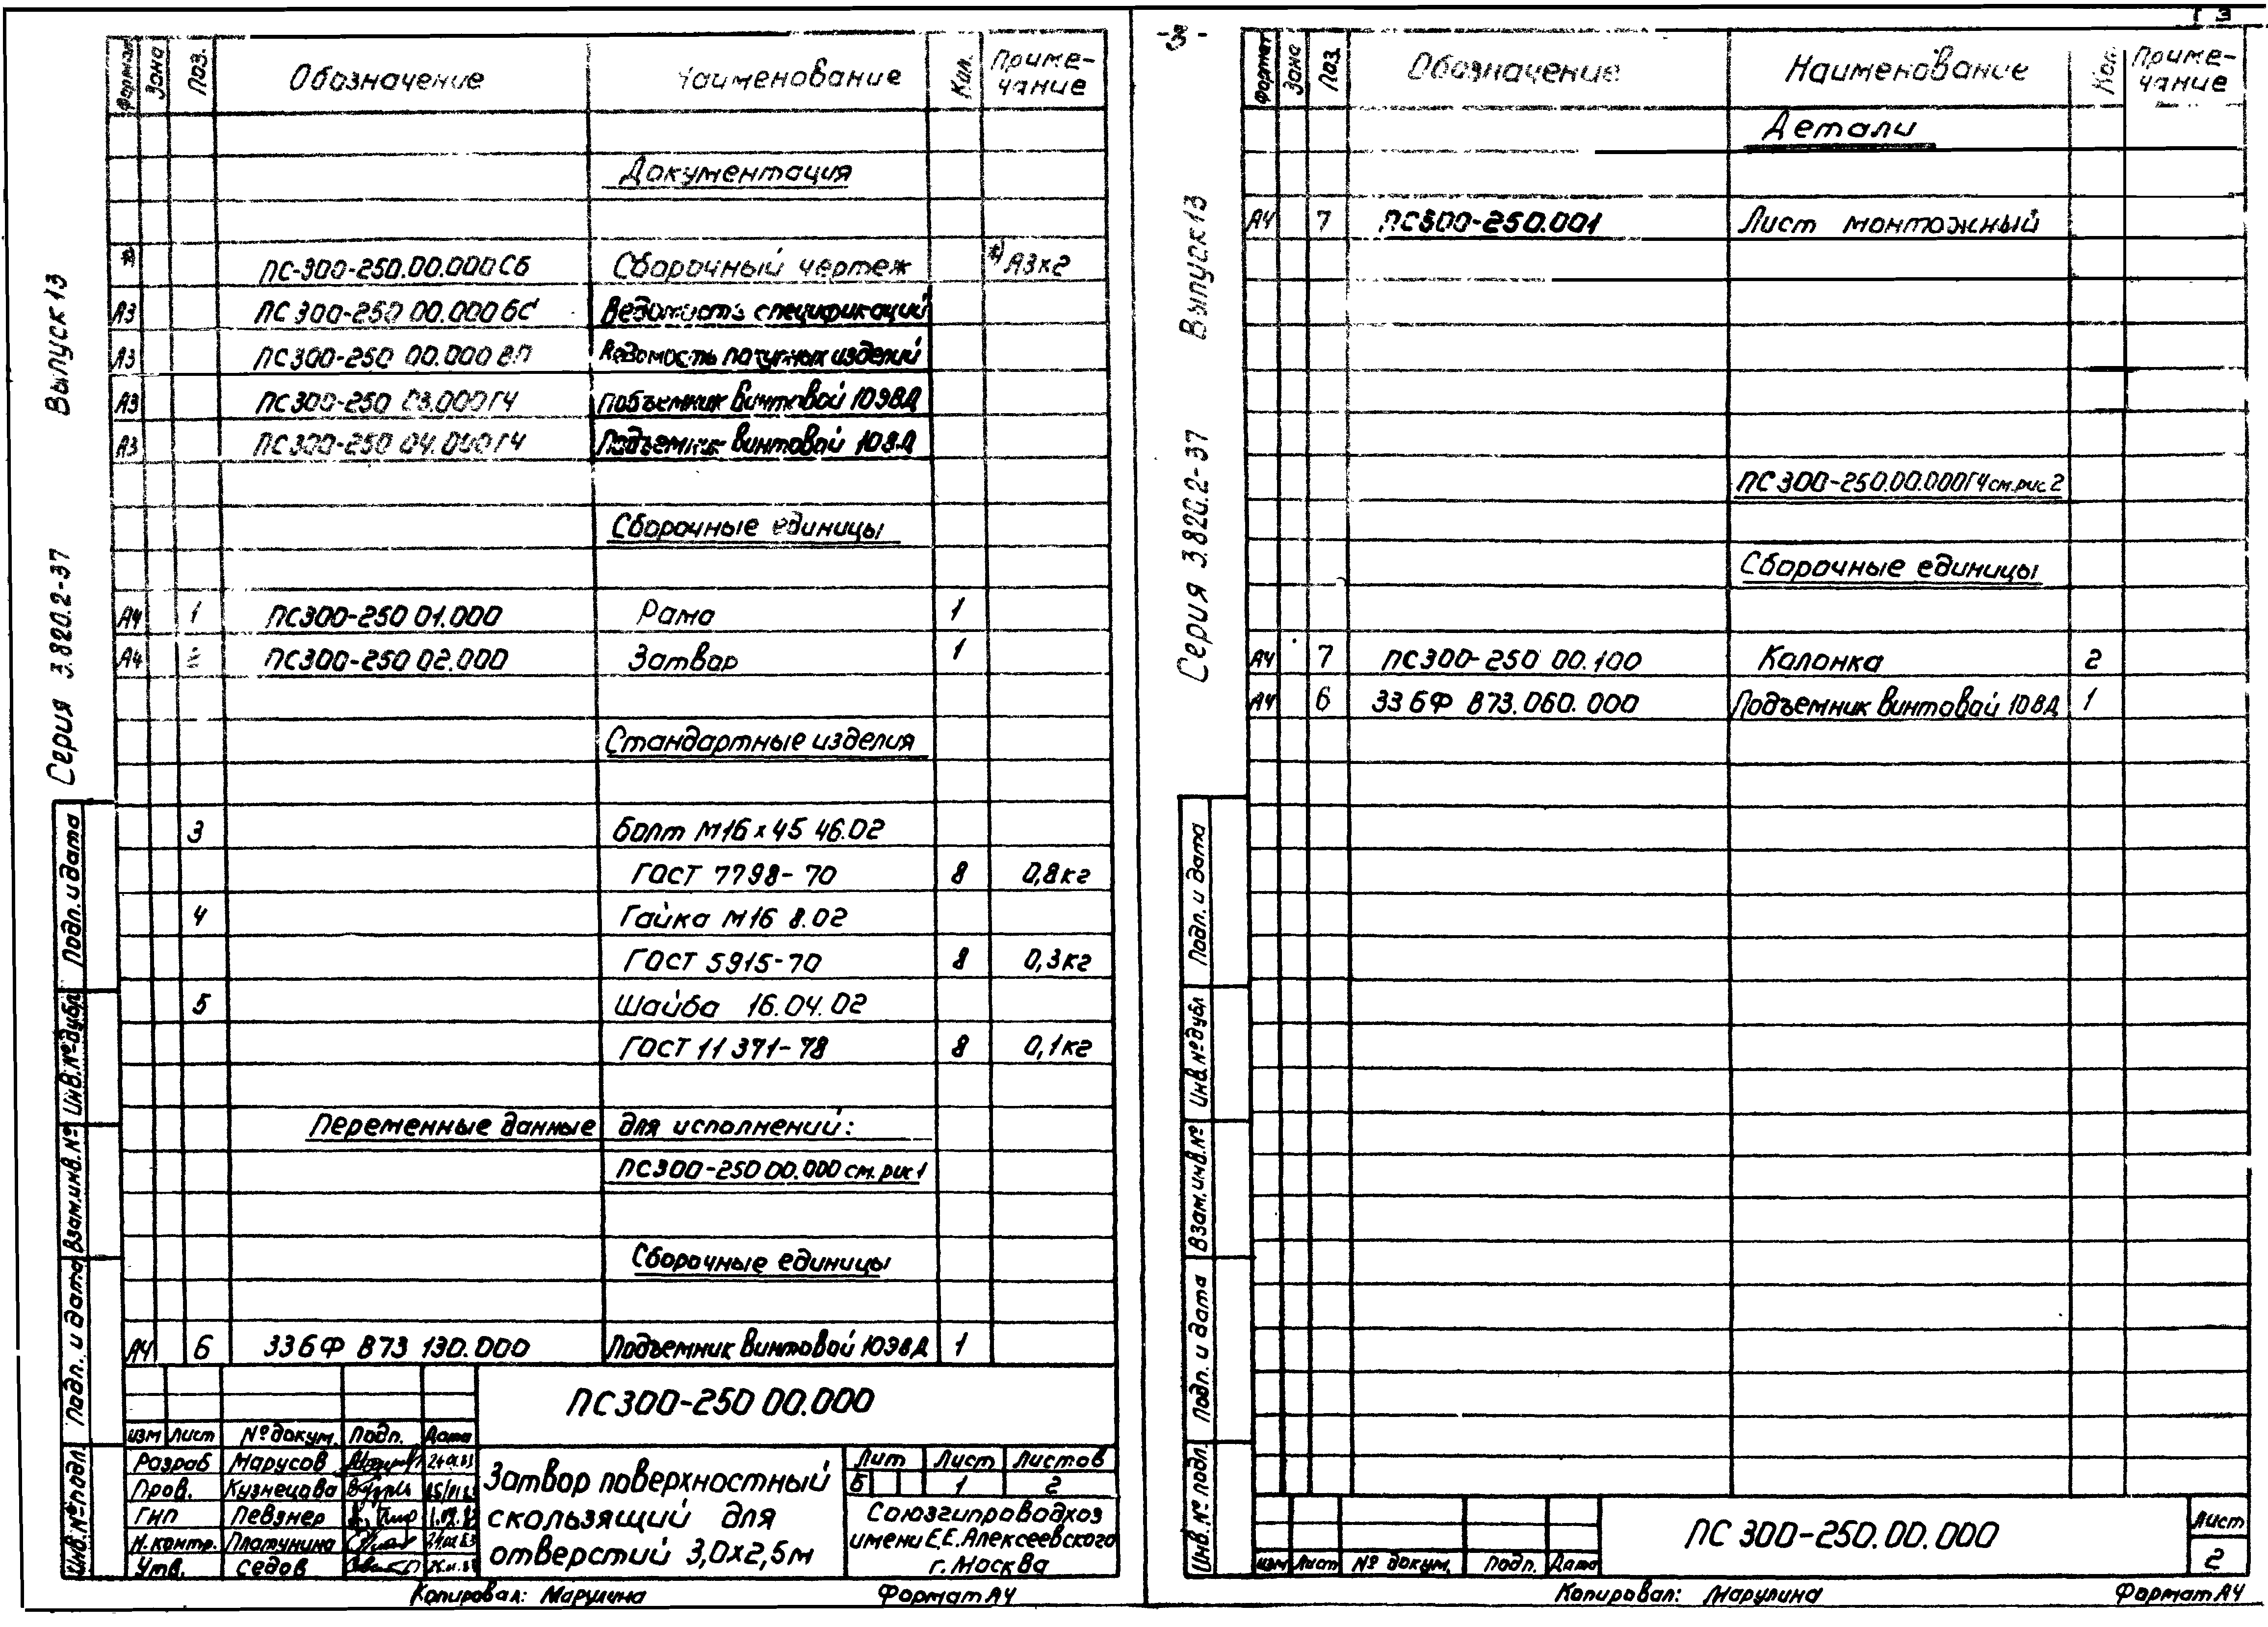 Формат Зона Поз. Обозначение Наименование Кол. Приме-
чание
Документация
*) ПС-300-250.00.000СБ Сборочный чертеж *) А3х2
А3 ПС300-250 00.000ВС Ведомость спецификаций
А3 ПС300-250 00.000ВП Ведомость покупных изделий
А3 ПС300-250 03.000ГЧ Подъемник винтовой 10ЭВД
А3 ПС300-250 04.000ГЧ Подъемник винтовой 10ВД
Сборочные единицы
А4 1 ПС300-250 01.000 Рама 1
А4 2 ПС300-250 02.000 Затвор 1
Стандартные изделия
3 Болт М16х45 46.02
ГОСТ 7798-70 8 0,8кг
4 Гайка М16 8.02
ГОСТ 5915-70 8 0,3кг
5 Шайба 16.04.02
ГОСТ 11371-78 8 0,1кг
Переменные данные для исполнений:
ПС300-250 00.000 см.рис 1
Сборочные единицы
А4 6 33бФ 873 130.000 Подъемник винтовой 10ЭВД 1
Серия 3.820.2-37 Выпуск 13
Подп. и дата
Инв.№дубл
Взам.инв.№
Подп. и дата
Инв.№подл.
ПС300-250 00.000
Изм Лист №докум. Подп. Дата
Разраб Марусов
Пров. Кузнецова
ГИП Певзнер
Н.контр. Платунина
Утв. Седов
Затвор поверхностный
скользящий для
отверстий 3,0х2,5м
Лит Лист Листов
Б 1 2
Союзгипроводхоз
имени Е.Е.Алексеевского
г.Москва
Копировал: Марулина Формат А4
3
Формат Зона Поз. Обозначение Наименование Кол Приме-
чание
Детали
А4 7 ПС300-250.001 Лист монтажный
ПС300-250.00.000ГЧ см.рис 2
Сборочные единицы
А4 7 ПС300-250 00.100 Колонка 2
А4 6 33бФ 873.060.000 Подъемник винтовой 10ВД 1
Серия 3.820.2-37 Выпуск 13
Подп. и дата
Инв.№дубл
Взам.инв.№
Подп. и дата
Инв.№подл.
Изм Лист № докум. Подп. Дата
ПС 300-250.00.000
Лист
2
Копировал: Марулина Формат А4